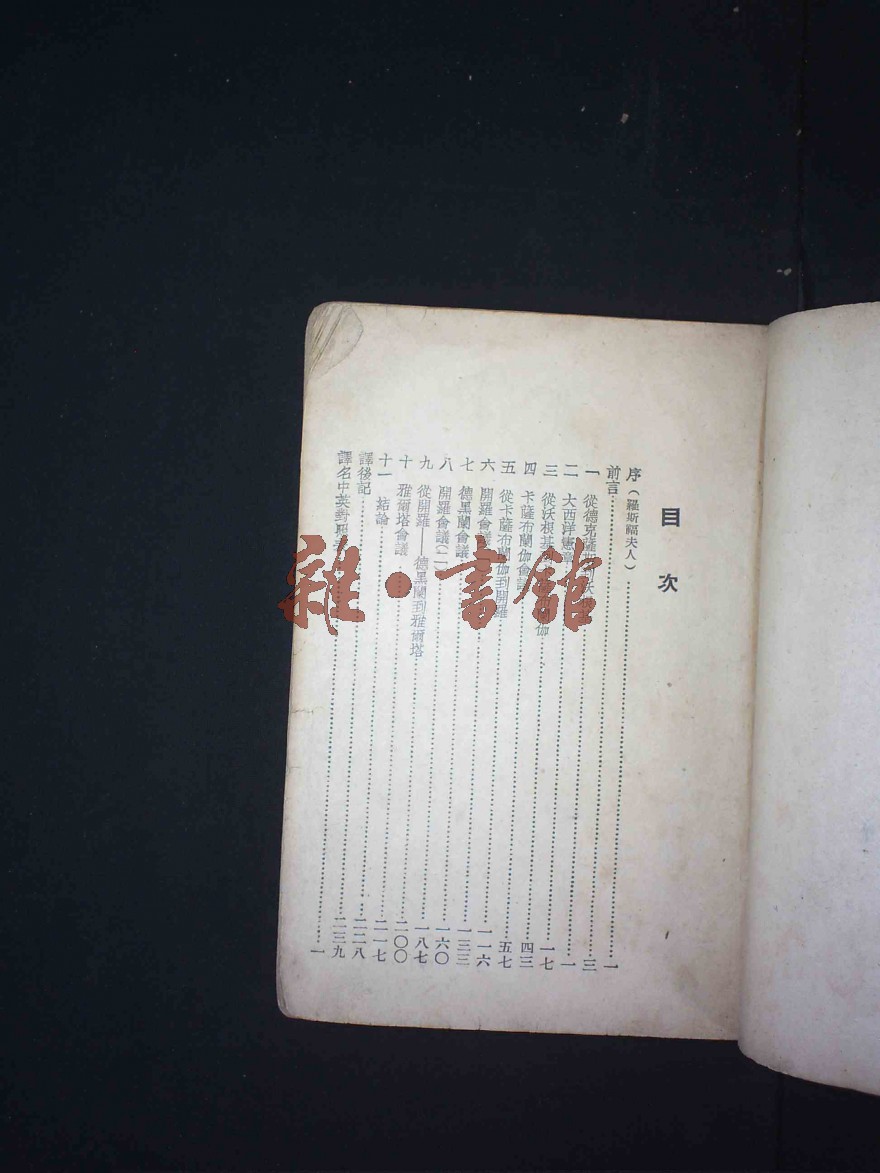 目次
序(羅斯福夫人)……一
前言……三
一 從德克薩……一
二 大西洋憲……一七
三 從沃根基 伽……四三
四 卡薩布蘭伽會……五七
五 從卡薩布蘭伽到開羅……一一六
六 開羅會議……一三三
七 德黑蘭會議……一六〇
八 開羅會議(二)……一八七
九 從開羅——德黑蘭到雅爾塔……二〇〇
十 雅爾塔會議……二一七
十一 結論……二二八
譯後記……二三九
譯名中英對……一
雜·書館